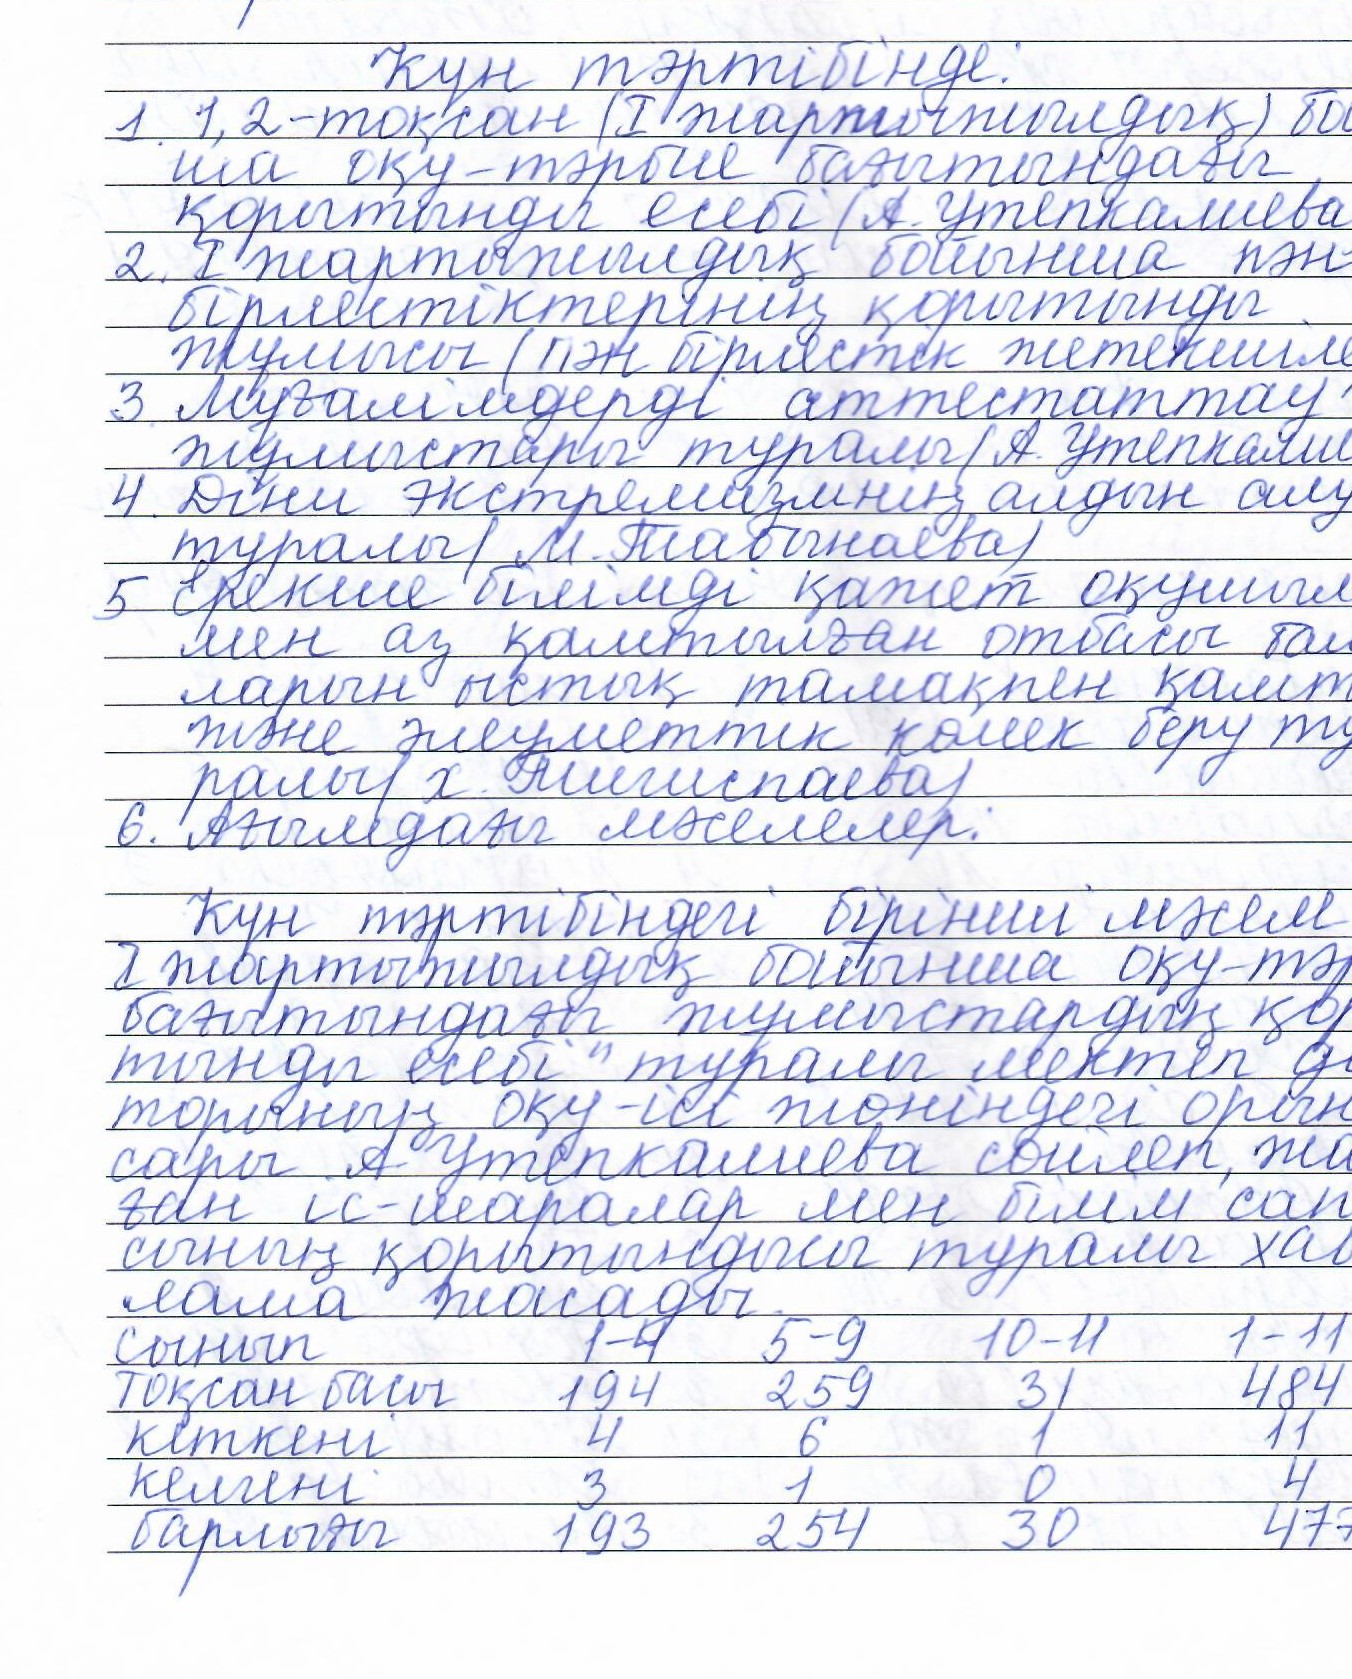 Күн тәртібінде:
1. 1,2-тоқсан (I жартыжылдық) бой
ша оқу-тәрбие бағытындағы
қорытынды есебі (А.Утепкалиева
2. I жартыжылдық бойынша пән
бірлестіктерінің қорытынды
жұмысы (пән бірлестік жетекшіле
3. Мұғалімдерді аттестаттау
жұмыстары туралы (А.Утепкалие
4. Діни экстремизмнің алдын алу
туралы (М.Табынаева)
5 Ерекше білімді қажет оқушыл
мен аз қамтылған отбасы бал
ларын ыстық тамақпен қамт
және әлеуметтік көмек беру ту
ралы (Х. Тлигиспаева)
6. Ағымдағы мәселелер.
Күн тәртібіндегі бірінші мәсел
I жартыжылдық бойынша оқу-тәр
бағытындағы жұмыстардың қор
тынды есебі" туралы мектеп ди
торының оқу-ісі жөніндегі орын
сары А Утепкалиева сөйлеп, жа
ған іс-шаралар мен білім сап
сының қорытындысы туралы хаб
лама жасады.
сынып 1-4 5-9 10-11 1-11
тоқсан басы 194 259 31 484
кеткені 4 6 1 11
келгені 3 1 0 4
барлығы 193 254 30 477